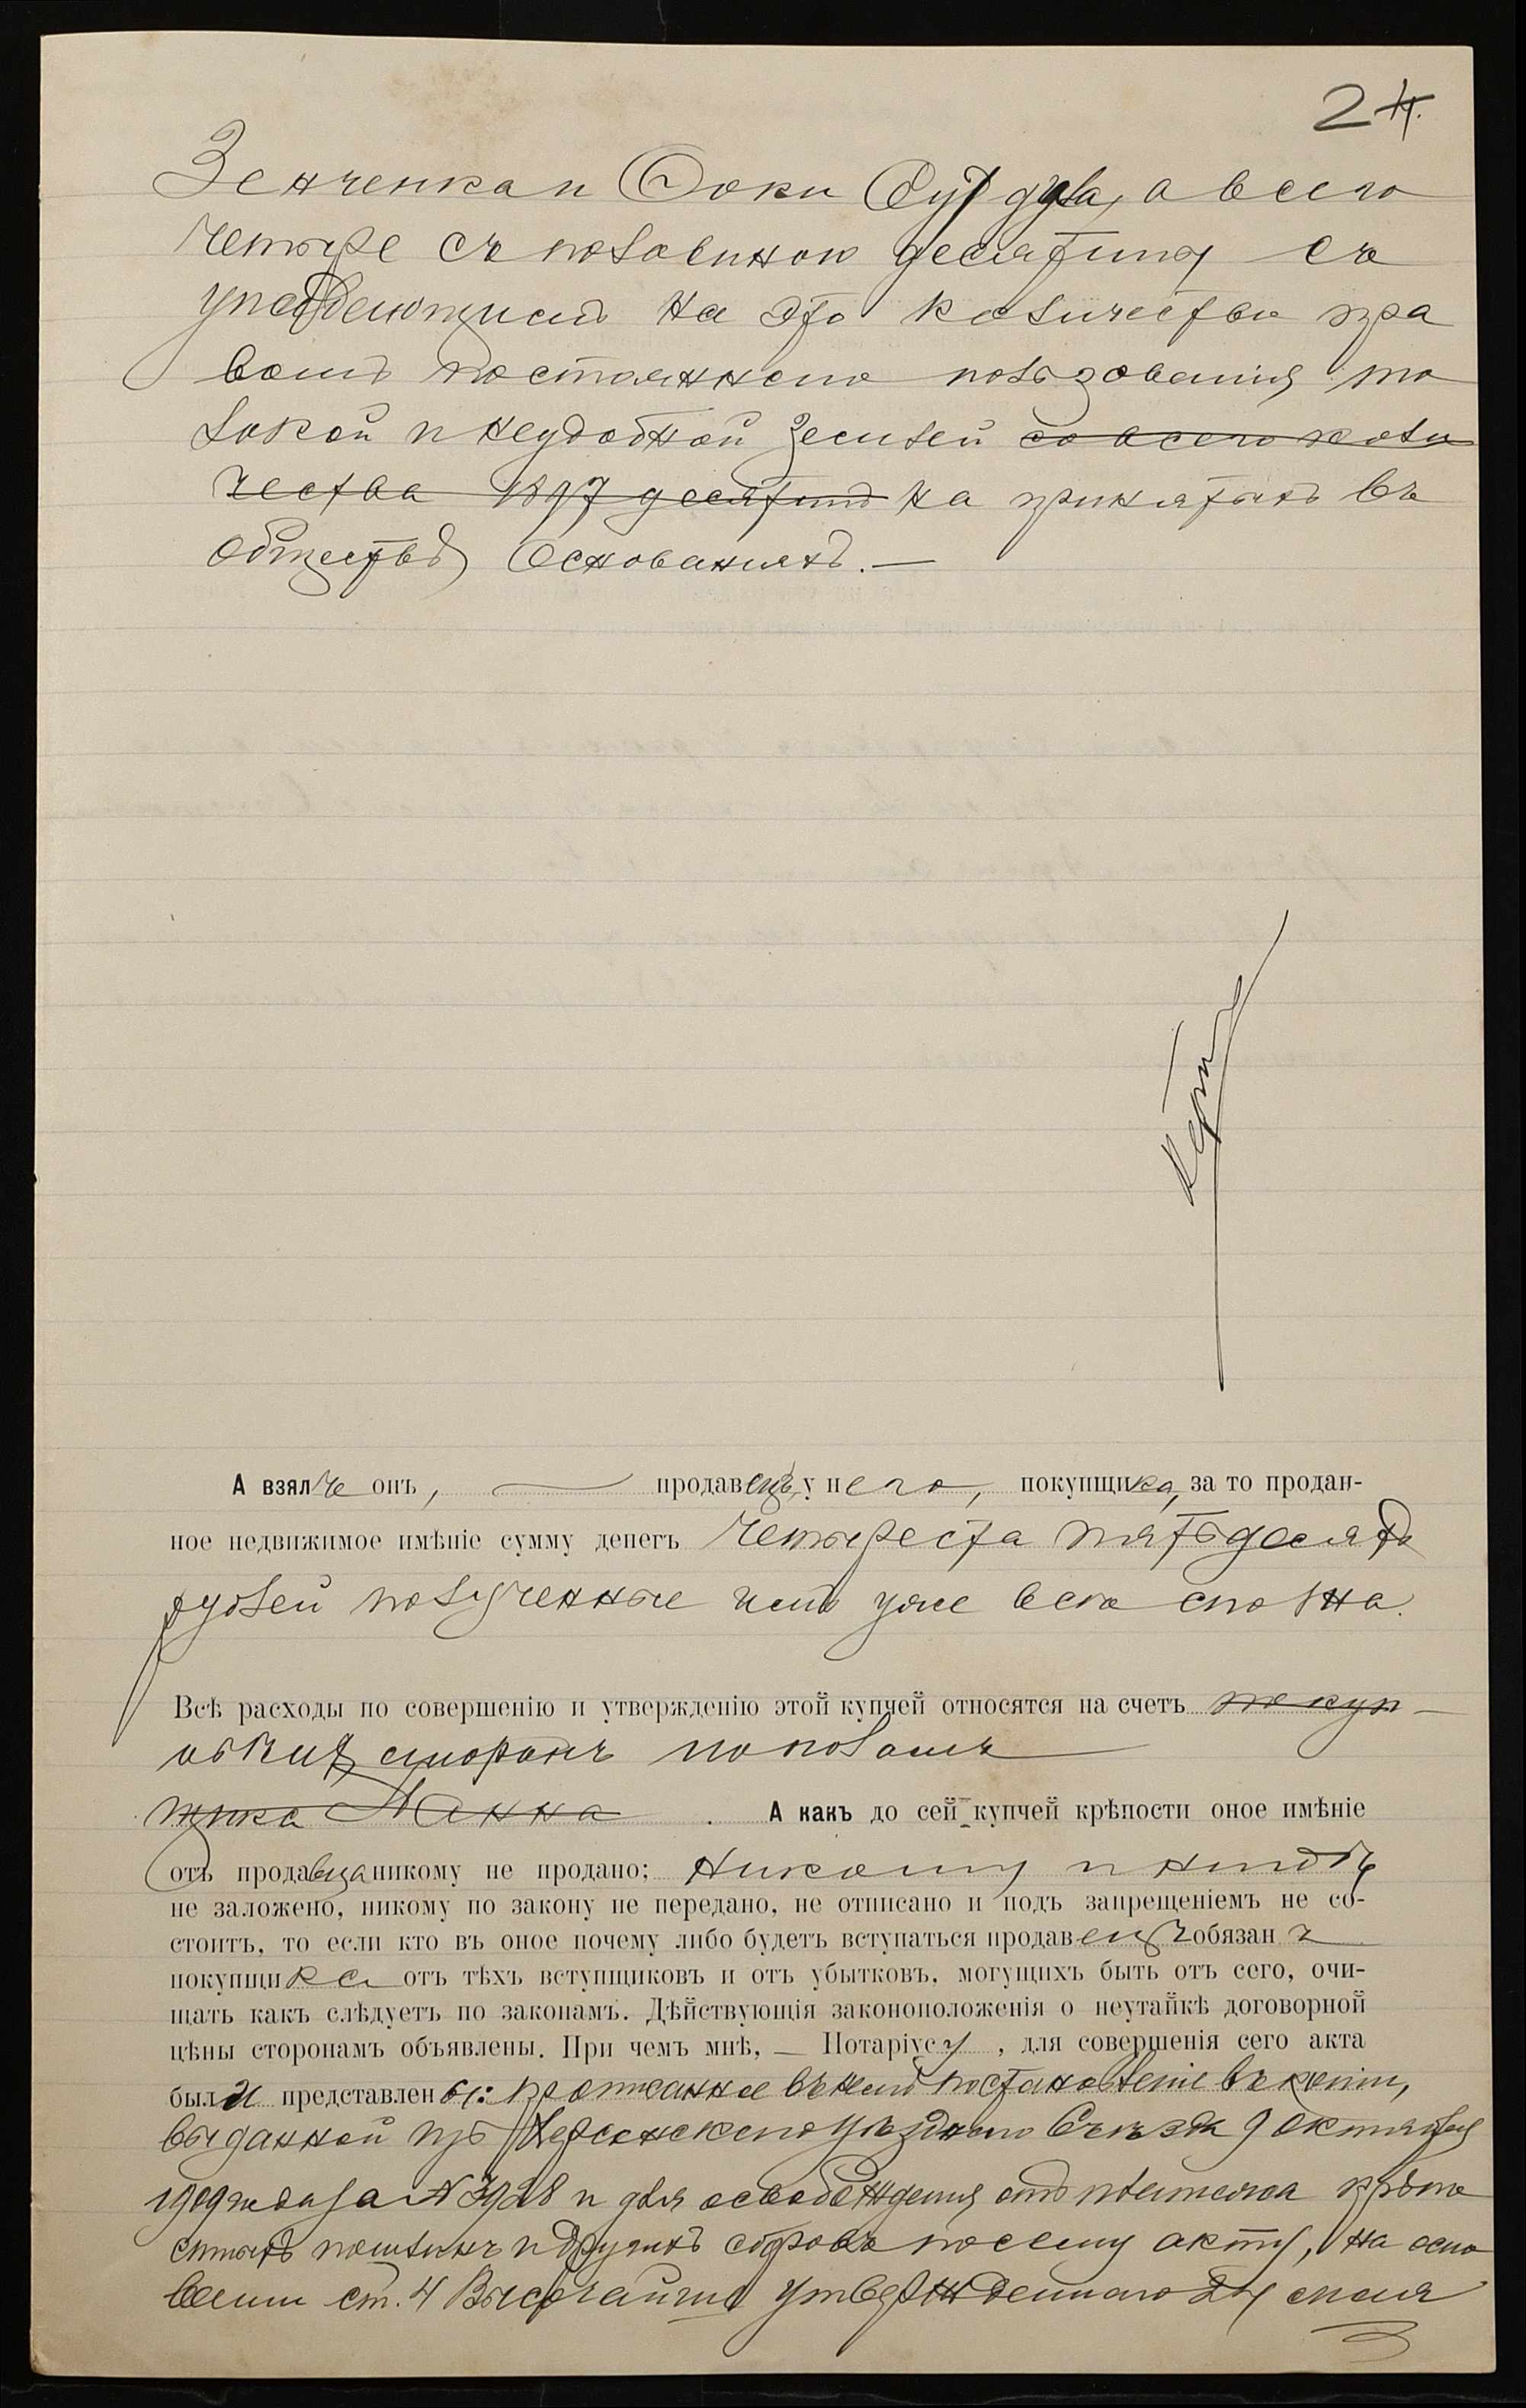 24.
Зенченка и Фоки Будуа, а всего
четыре съ половиною десятины съ
упадающимъ на это количество пра
вомъ постояннаго пользованія то
локой и неудобной землей со всего коли
чества 1897 десятинъ на принятыхъ въ
обществѣ основаніяхъ. —
А взялъ онъ, — продавецъ, у него, покупщика, за то продан-
ное недвижимое имѣніе сумму денегъ четыреста пятьдесятъ
рублей полученные имъ уже все сполна.
Всѣ расходы по совершенію и утвержденію этой купчей относятся на счетъ покуп-
обѣихъ сторонъ пополамъ
щика Манна . А какъ до сей купчей крѣпости оное имѣніе
отъ продавца никому не продано; никому и нигдѣ
не заложено, никому по закону не передано, не отписано и подъ запрещеніемъ не со-
стоитъ, то если кто въ оное почему либо будетъ вступаться продавецъ обязанъ
покупщика отъ тѣхъ вступщиковъ и отъ убытковъ, могущихъ быть отъ сего, очи-
щать какъ слѣдуетъ по законамъ. Дѣйствующія законоположенія о неутайкѣ договорной
цѣны сторонамъ объявлены. При чемъ мнѣ, — Нотаріусу , для совершенія сего акта
были представлены: прописанное въ немъ постановленіе въ копіи,
выданной изъ Херсонскаго Уѣзднаго Съѣзда 9 октября
1909 года за № 3928 и для освобожденія отъ платежа крѣпо
стныхъ пошлинъ и другихъ сборовъ по сему акту, на осно
ваніи ст. 4 Высочайше утвержденнаго 24 мая